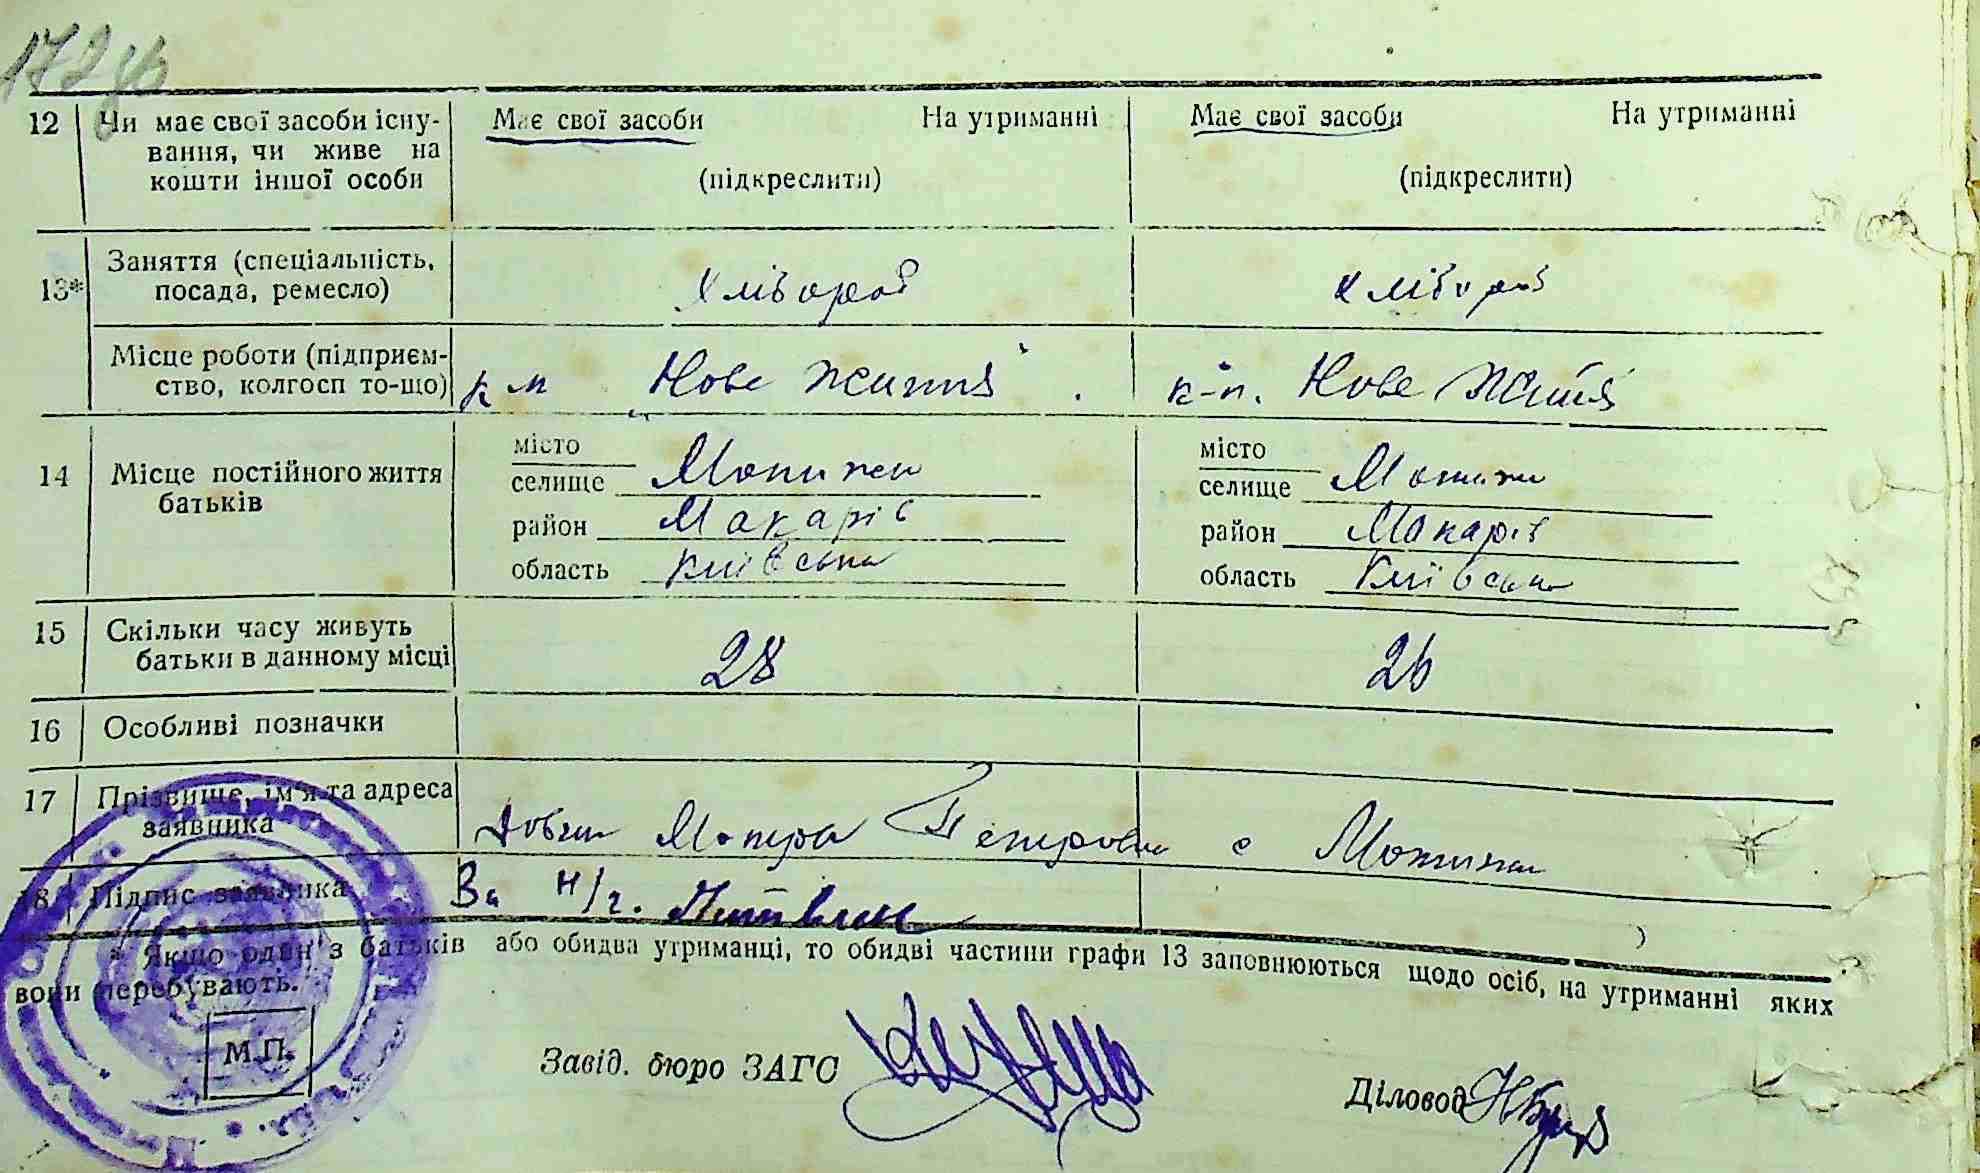 172 зв
12 Чи має свої засоби існу- Має свої засоби На утриманні Має свої засоби На утриманні
вання, чи живе на
кошти іншої особи (підкреслити) (підкреслити)
13* Заняття (спеціальність,
посада, ремесло) Хлібороб хлібороб
Місце роботи (підприєм-
ство, колгосп то-що) Нове життя к-п. Нове Життя
14 Місце постійного життя
батьків
місто місто
селище Мотижин селище Мотижин
район Макарів район Макарів
область Київська область Київська
15 Скільки часу живуть
батьки в данному місці 28 26
16 Особливі позначки
17 Прізвище, ім'я та адреса
заявника Мотря Петровна с Мотижин
18 Підпис заявника За н/г.
* Якщо один з батьків або обидва утриманці, то обидві частини графи 13 заповнюються щодо осіб, на утриманні яких
вони перебувають.
М.П.
Завід. бюро ЗАГС
Діловод